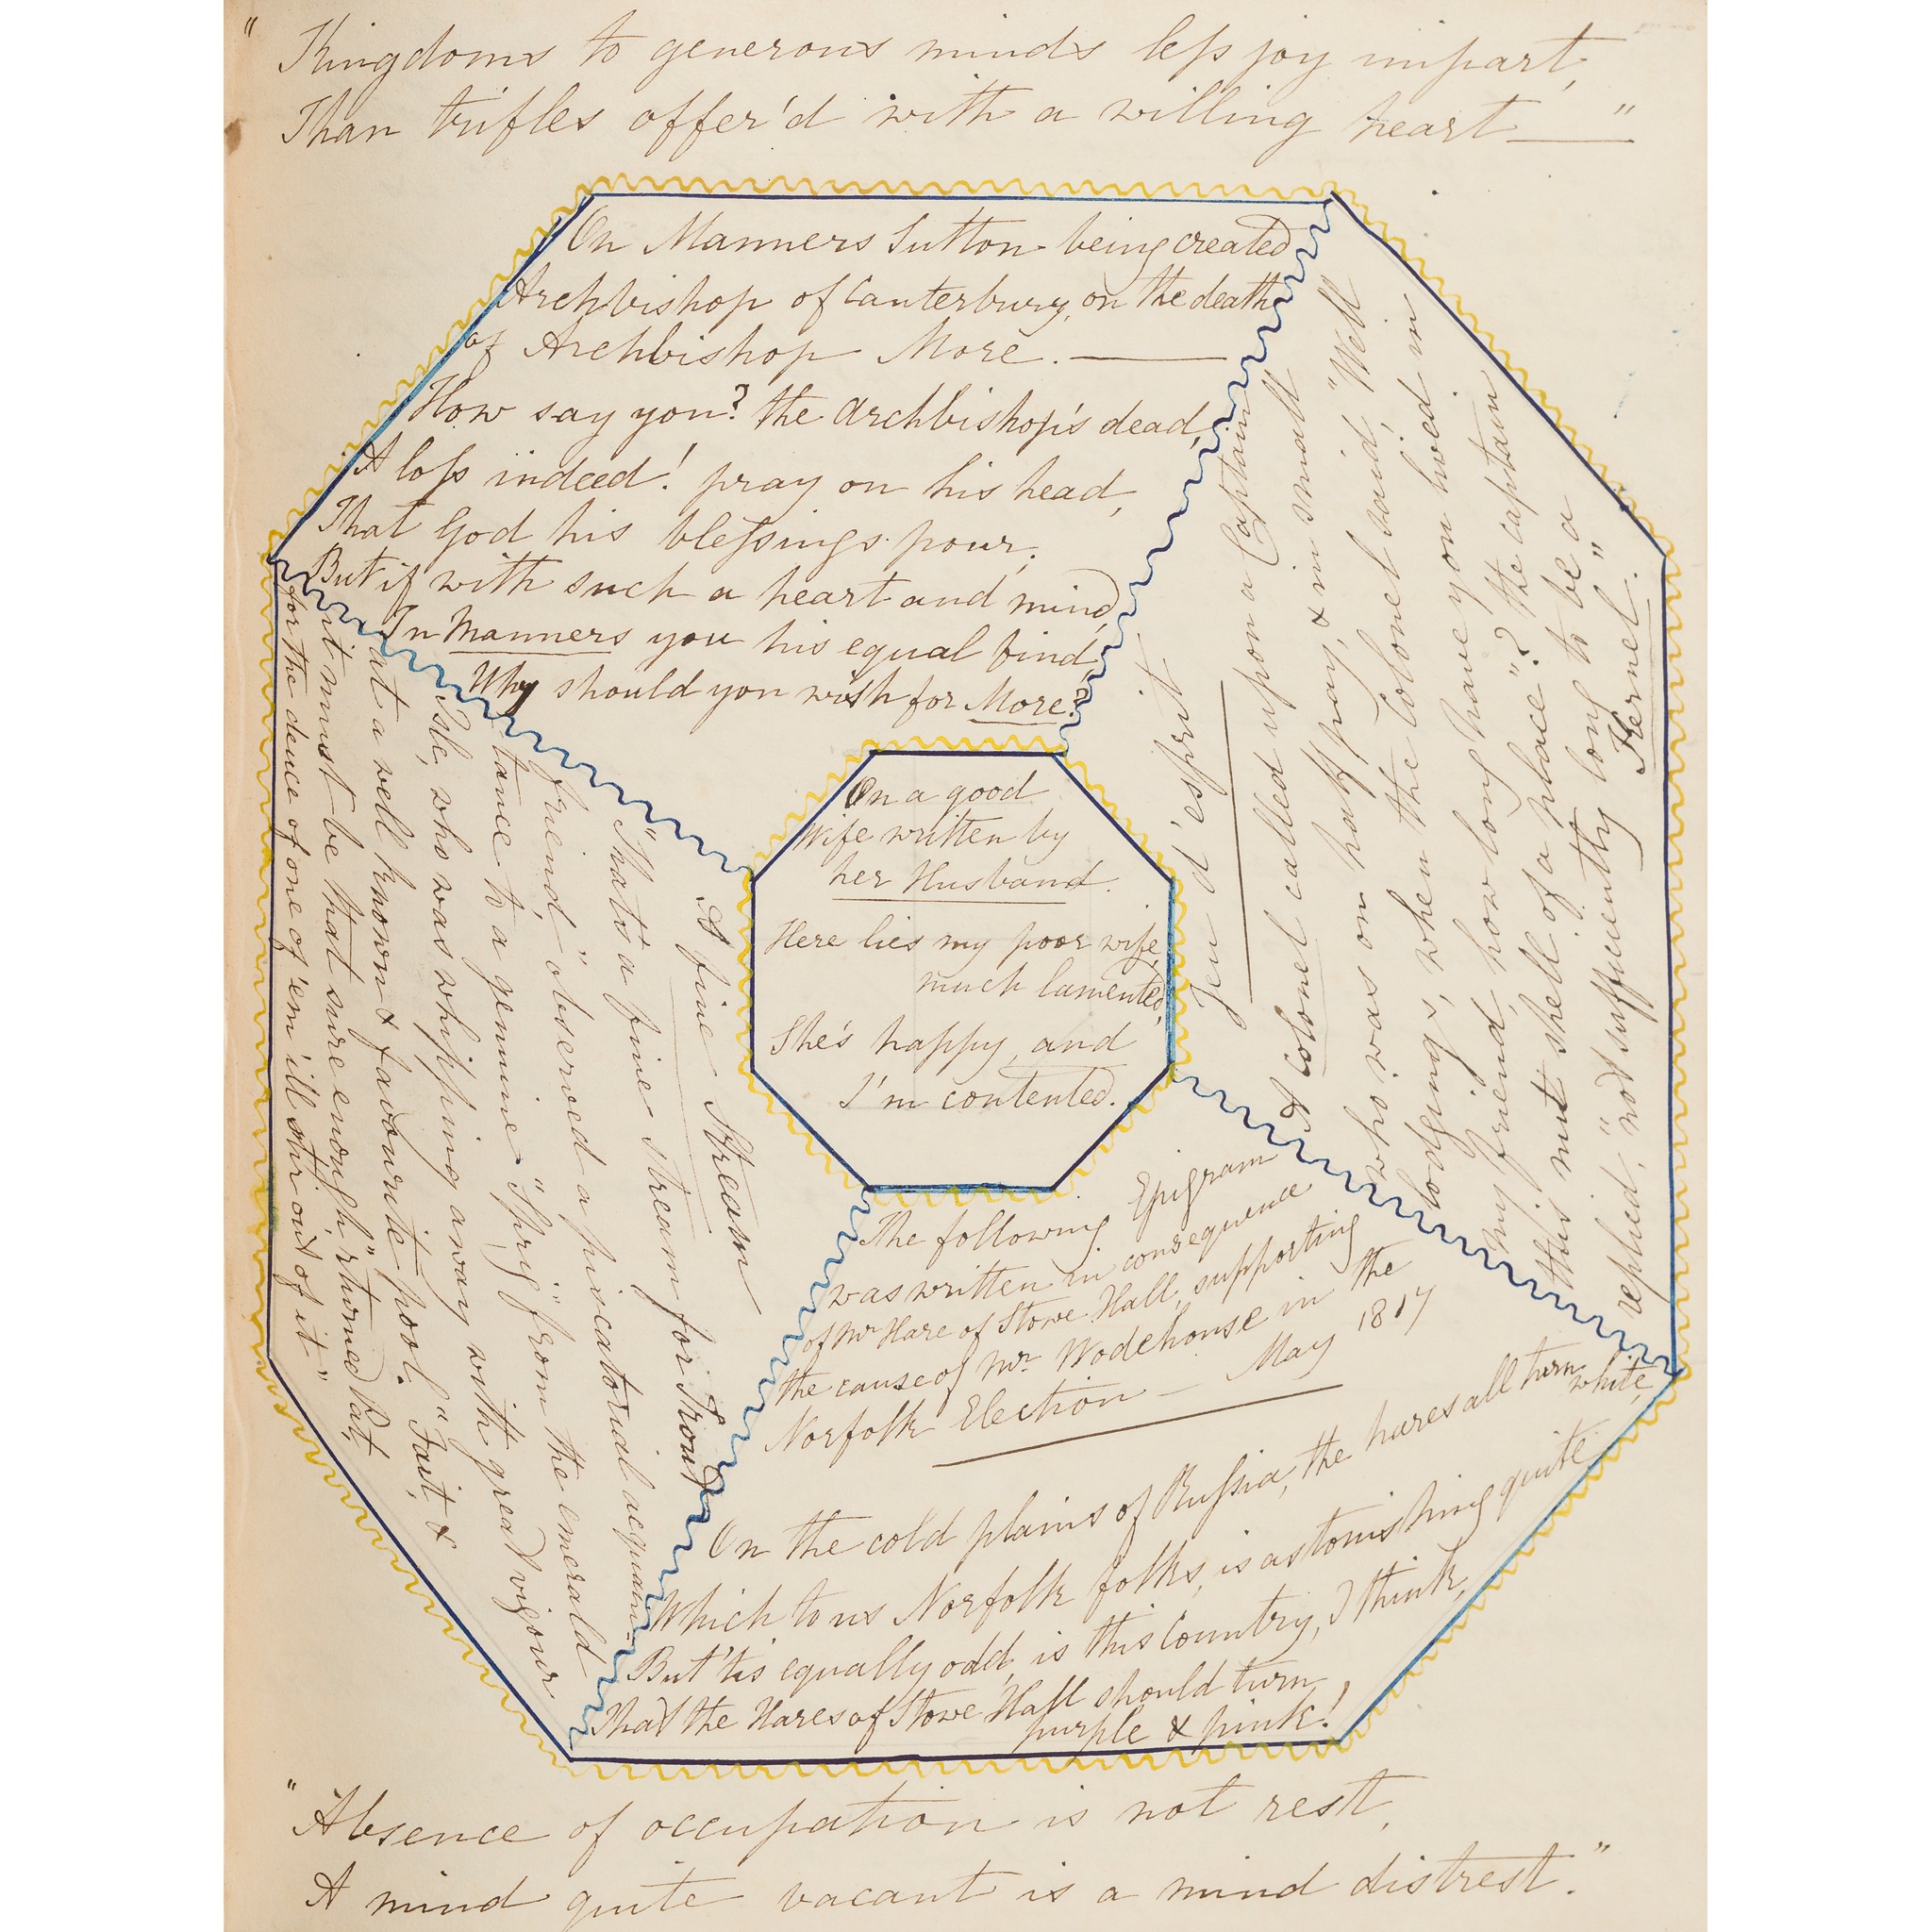 " Kingdoms to generous minds less joy impart,
Than trifles offer'd with a willing heart — "
On Manners Sutton being created
Archbishop of Canterbury, on the death
of Archbishop More. —
How say you? the Archbishop's dead,
A loss indeed! pray on his head,
That God his blessings pour,
But if with such a heart and mind,
In Manners you his equal find,
Why should you wish for More?
Jeu d'esprit
A Colonel called upon a Captain
who was on half pay, & in small
lodgings, when the Colonel said, "Well
my friend, how long have you hived in
this nut shell of a place"? the captain
replied, "not sufficiently long to be a
Kernel."
On a good
Wife written by
her Husband.
Here lies my poor wife,
much lamented,
She's happy, and
I'm contented.
The following Epigram
was written in consequence
of Mr Hare of Stowe Hall, supporting
the cause of Mr Wodehouse in the
Norfolk Election — May 1817
On the cold plains of Russia, the hares all turn
white,
Which to us Norfolk folks, is astonishing quite
But 'tis equally odd, is this Country, I think,
That the Hares of Stowe Hall should turn
purple & pink!
A fine Stream
"That's a fine stream for Trout,
friend," observed a piscatorial acquain-
tance to a genuine "Sprig" from the emerald
Isle, who was whipping away with great vigour
at a well known & favourite pool. "Fait, &
it must be that sure enough," returned Pat,
for the deuce of one of 'em i'll stir out of it"
"Absence of occupation is not rest,
A mind quite vacant is a mind distrest."